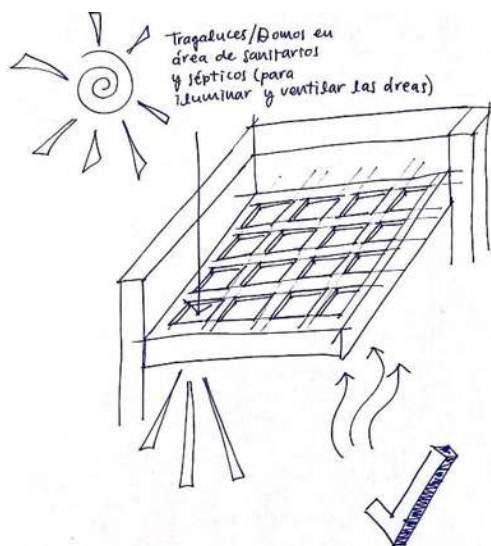 Tragaluces/Domos en
área de sanitarios
y sépticos (para
iluminar y ventilar las áreas)